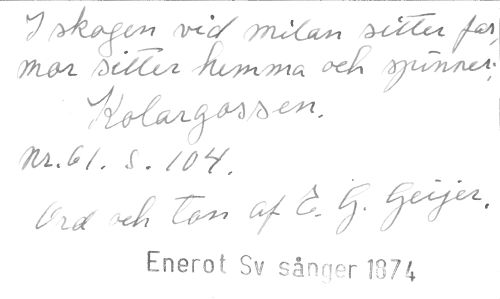 I skogen vid milan sitter far,
mor sitter hemma och spinner;
Kolargossen.
Nr. 61. S. 104.
Ord och ton af E. G. Geijer.
Enerot Sv sånger 1874